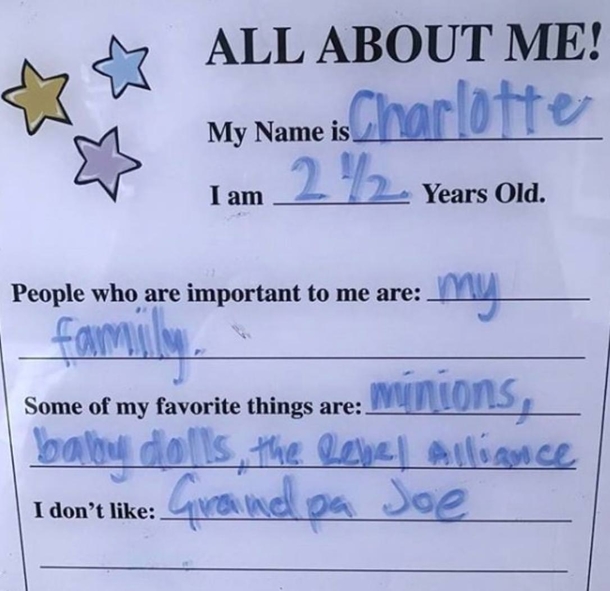 ALL ABOUT ME!
My Name is Charlotte
I am 2 1/2 Years Old.
People who are important to me are: my
family.
Some of my favorite things are: minions,
baby dolls, the Rebel Alliance
I don't like: Grandpa Joe